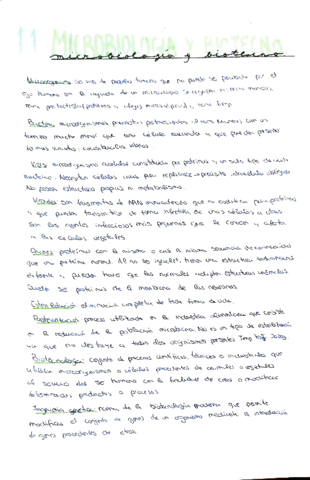 11 MICROBIOLOGÍA Y BIOTECNO
microbiología y biotecno
Microorganismo: ser vivo de pequeño tamaño que no puede ser percibido por el
ojo humano sin la ayuda de un microscopio
Bacterias: microorganismos procariotas
tamaño mucho menor que una célula eucariota y que pueden presentar
formas variadas
Virus: microorganismo acelular constituido por proteínas y un solo tipo de ácido
nucleico. Necesitan células vivas para replicarse → parásito intracelular obligado
No posee estructura propia ni metabolismo.
Viroides: son fragmentos de ARN monocatenario que no codifican para proteínas
y que pueden transmitirse de forma infectiva de unas células a otras
Son los agentes infecciosos más pequeños que se conocen y afectan
a las células vegetales.
Priones: proteínas con la misma o casi la misma secuencia de aminoácidos
que una proteína normal. Al no ser iguales, tienen una estructura tridimensional
diferente y pueden hacer que las normales adopten estructuras anómalas.
Suelen ser proteínas de la membrana de las neuronas.
Esterilización: eliminación completa de toda forma de vida.
Pasteurización: proceso utilizado en la industria alimentaria que consiste
en la reducción de la población microbiana. No es un tipo de esterilización
ya que no destruye a todos los organismos presentes
Biotecnología: conjunto de procesos científicos, técnicos o industriales que
utilizan microorganismos o células procedentes de animales o vegetales
al servicio del ser humano con la finalidad de crear o modificar
determinados productos o procesos.
Ingeniería genética: rama de la biotecnología moderna que permite
modificar el conjunto de genes de un organismo mediante la introducción
de genes procedentes de otros.